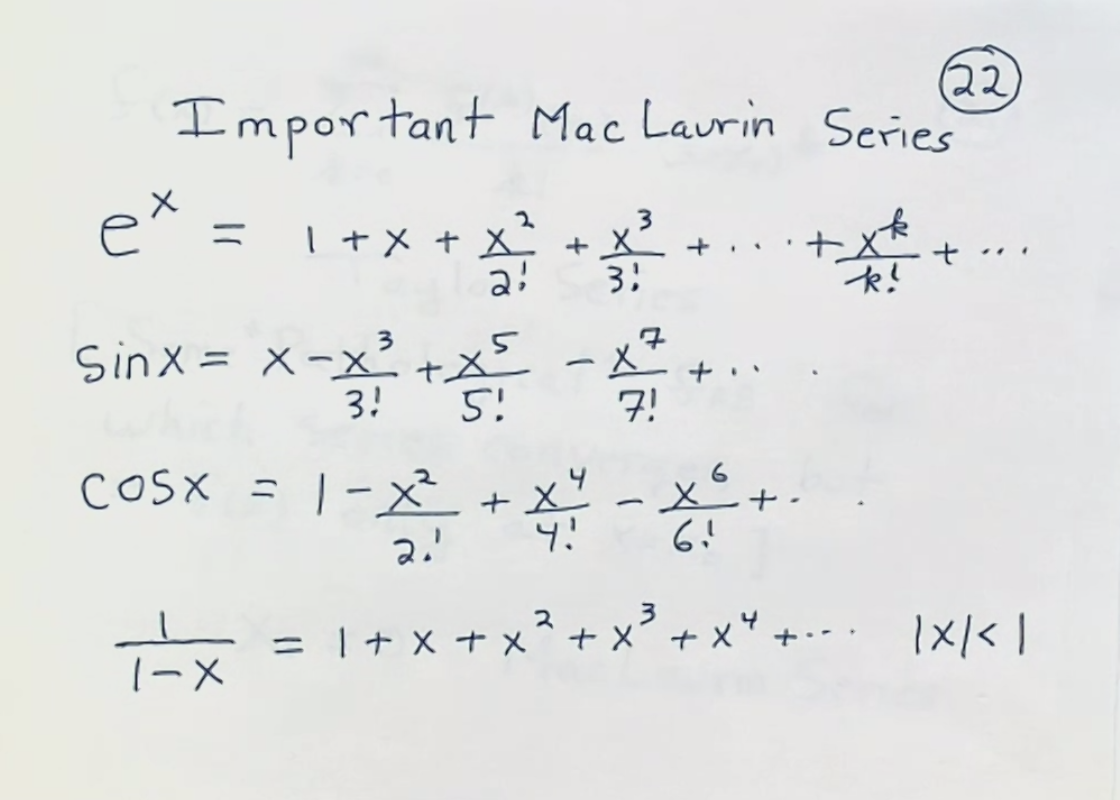 22
Important MacLaurin Series
e^x = 1 + x + x^2/2! + x^3/3! + ··· + x^k/k! + ···
sinx = x - x^3/3! + x^5/5! - x^7/7! + ···
cosx = 1 - x^2/2! + x^4/4! - x^6/6! + ··
1/(1-x) = 1 + x + x^2 + x^3 + x^4 + ··· |x| < 1